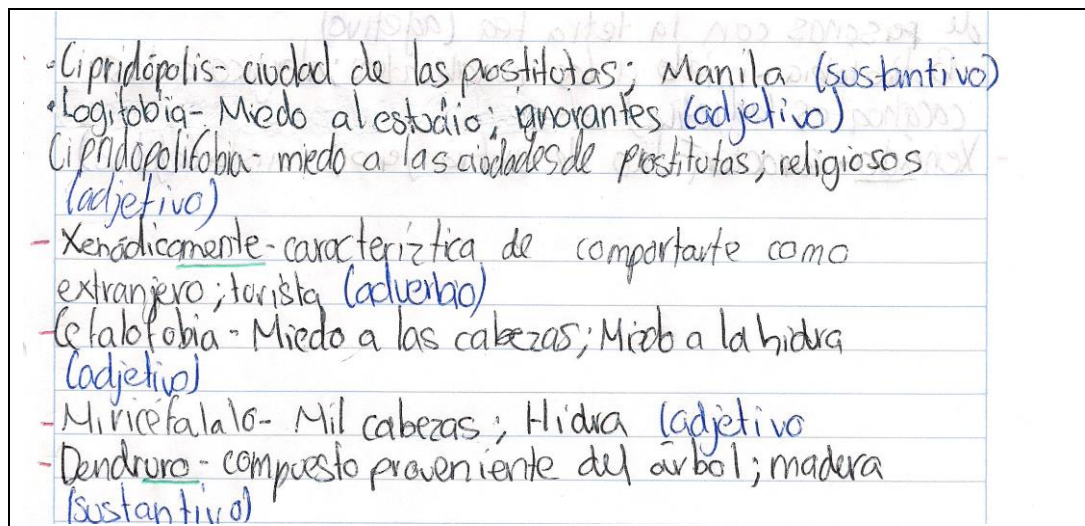 · Cipridópolis- ciudad de las prostitutas; Manila (sustantivo)
· Logifobia- Miedo al estudio; ignorantes (adjetivo)
Cipridopolifobia- miedo a las ciudades de prostitutas; religiosos
(adjetivo)
- Xenódicamente- caracteríztica de comportarte como
extranjero; turista (adverbio)
- Cefalofobia- Miedo a las cabezas; Miedo a la hidra
(adjetivo)
- Miricéfalalo- Mil cabezas; Hidra (adjetivo
- Dendruro- compuesto proveniente del árbol; madera
(sustantivo)